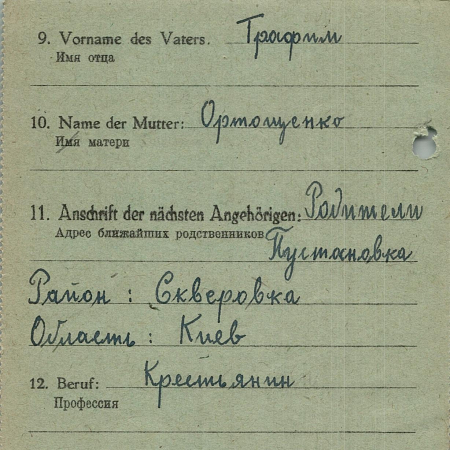 9. Vorname des Vaters. Трафим
Имя отца
10. Name der Mutter: Ортощенко
Имя матери
11. Anschrift der nächsten Angehörigen: Родители
Адрес ближайших родственников Пустановка
Район : Скверовка
Область : Киев
12. Beruf: Крестьянин
Профессия